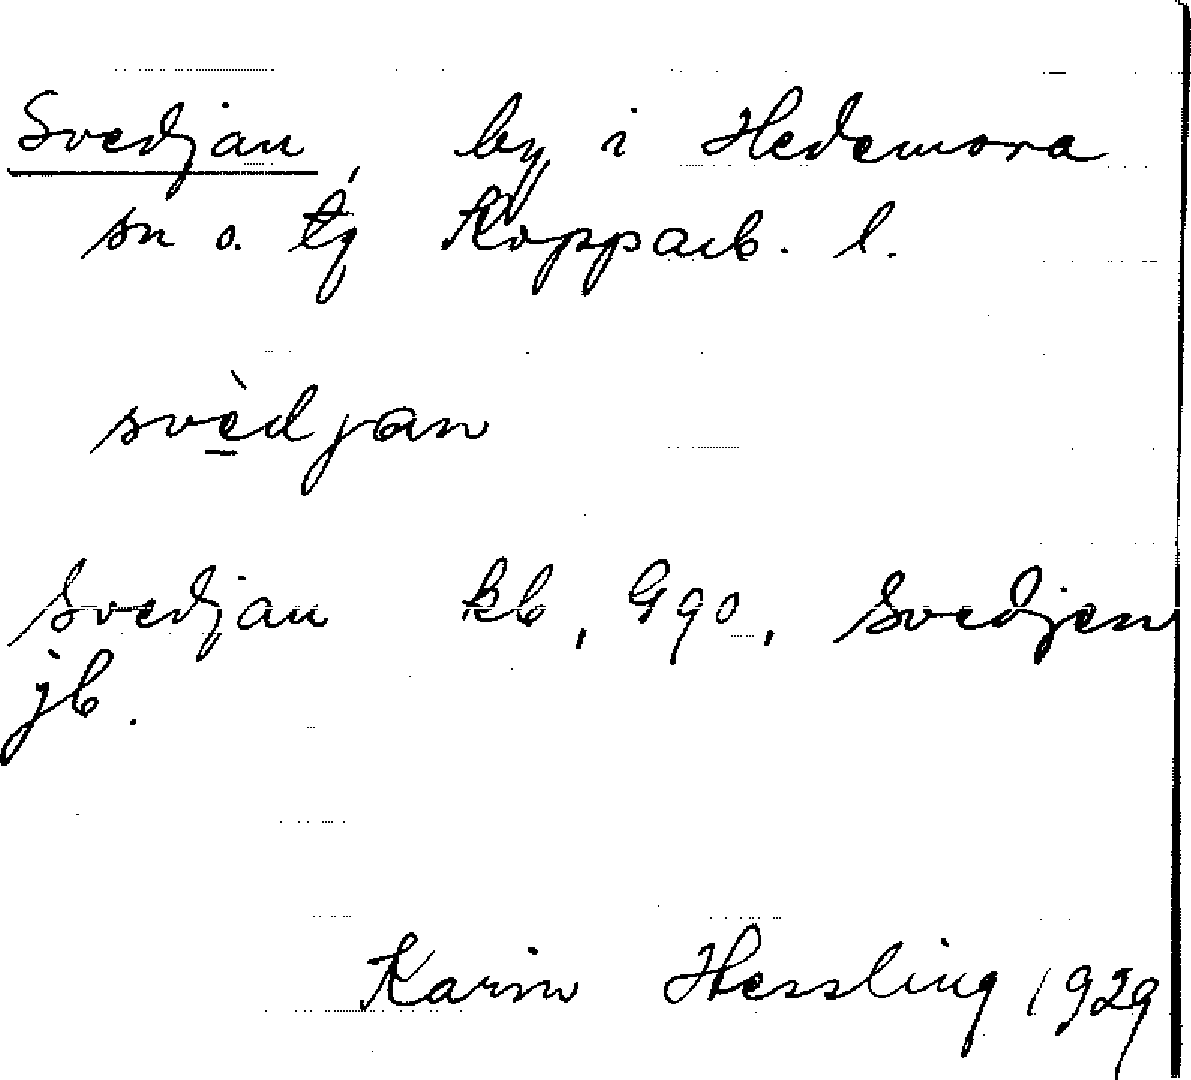 Svedjan, by i Hedemora
sn o. tg Kopparb. l.
svèdjan
Svedjan kb, Ggo, Svedjen
jb.
Karin Hessling 1929